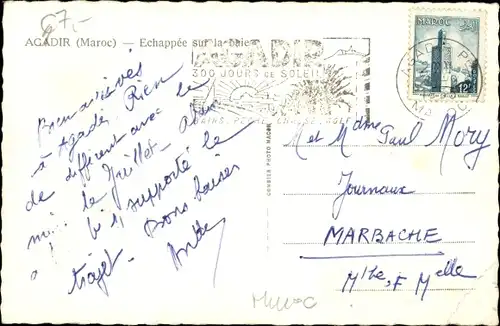 67,-
AGADIR (Maroc) — Echappée sur la baie
AGADIR
300 JOURS DE SOLEIL
BAINS. PÊCHE. GOLF
MAROC
12F
AGADIR
MAROC
Bien arrivés
à Agadir. Rien
de différent avec le
mi. de Juillet.
bi supporté le
trajet. Bons baisers
COURRIER PHOTO MAROC
M et Mme Paul Mory
Journaux
MARBACHE
Mthe, et Melle
Maroc